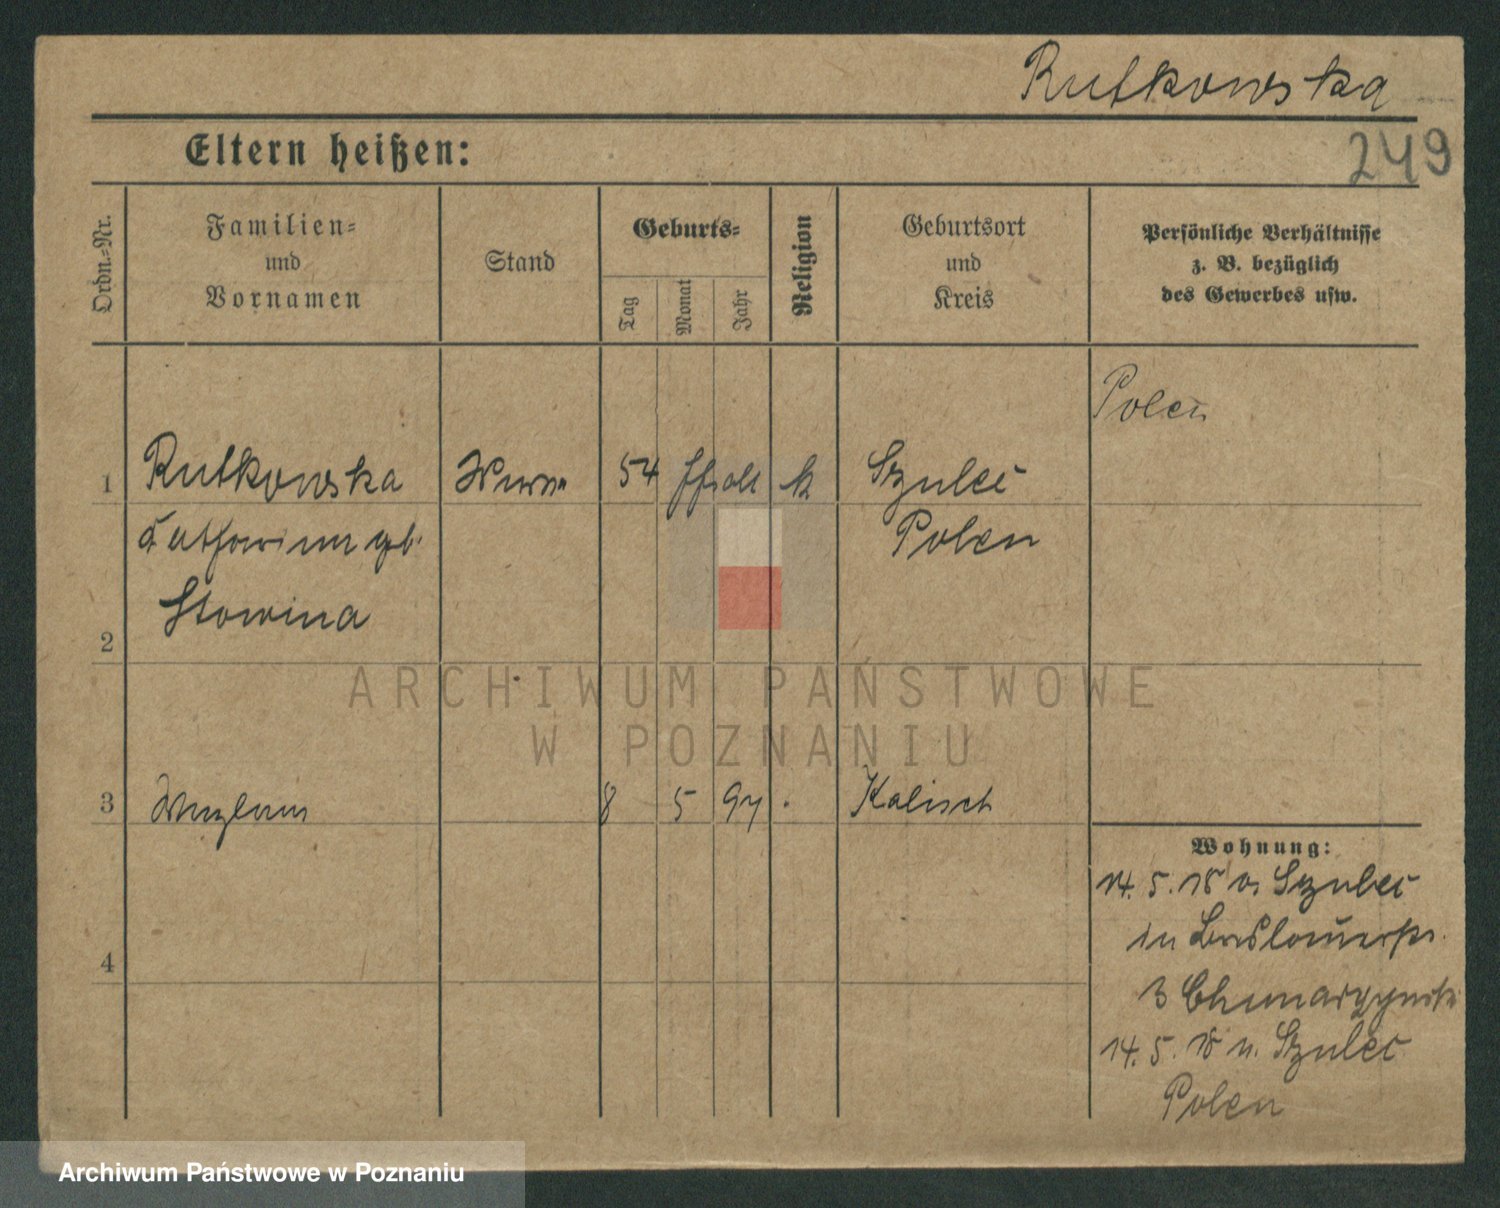 Rutkowska
249
Eltern heißen:
Ordn.=Nr.
Familien=
und
Vornamen
Stand
Geburts=
Tag
Monat
Jahr
Religion
Geburtsort
und
Kreis
Persönliche Verhältnisse
z. B. bezüglich
des Gewerbes usw.
Polen
1 Rutkowska 54 alt k Szulec
Catharina geb. Polen
Slowina
2
ARCHIWUM PAŃSTWOWE
W POZNANIU
3 8 5 97 Kalisch
Wohnung:
14. 5. 18 v. Szulec
in
3
14. 5. 18 n. Szulec
Polen
4
Archiwum Państwowe w Poznaniu